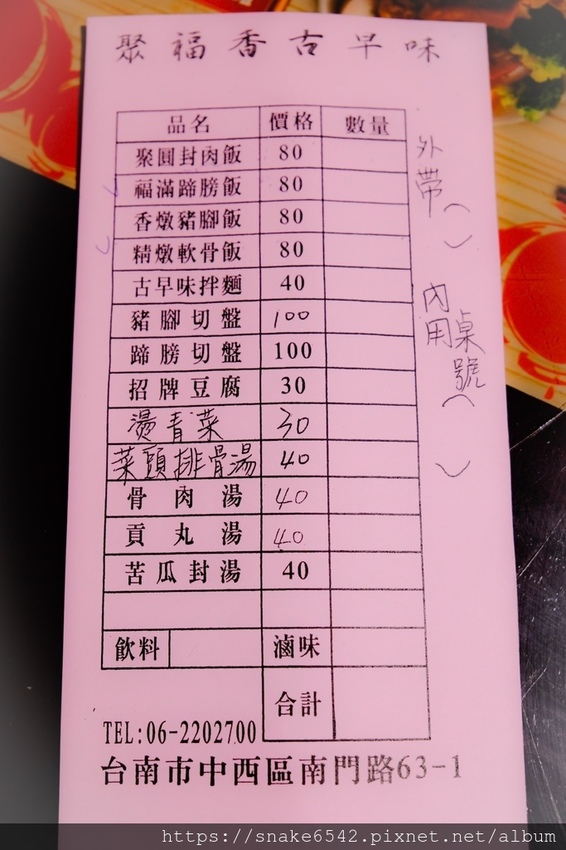 聚福香古早味
品名 價格 數量
聚圓封肉飯 80
福滿蹄膀飯 80
香燉豬腳飯 80
精燉軟骨飯 80
古早味拌麵 40
豬腳切盤 100
蹄膀切盤 100
招牌豆腐 30
燙青菜 30
菜頭排骨湯 40
骨肉湯 40
貢丸湯 40
苦瓜封湯 40
飲料 滷味
合計
外帶( )
內用桌號( )
TEL:06-2202700
台南市中西區南門路63-1
https://snake6542.pixnet.net/album